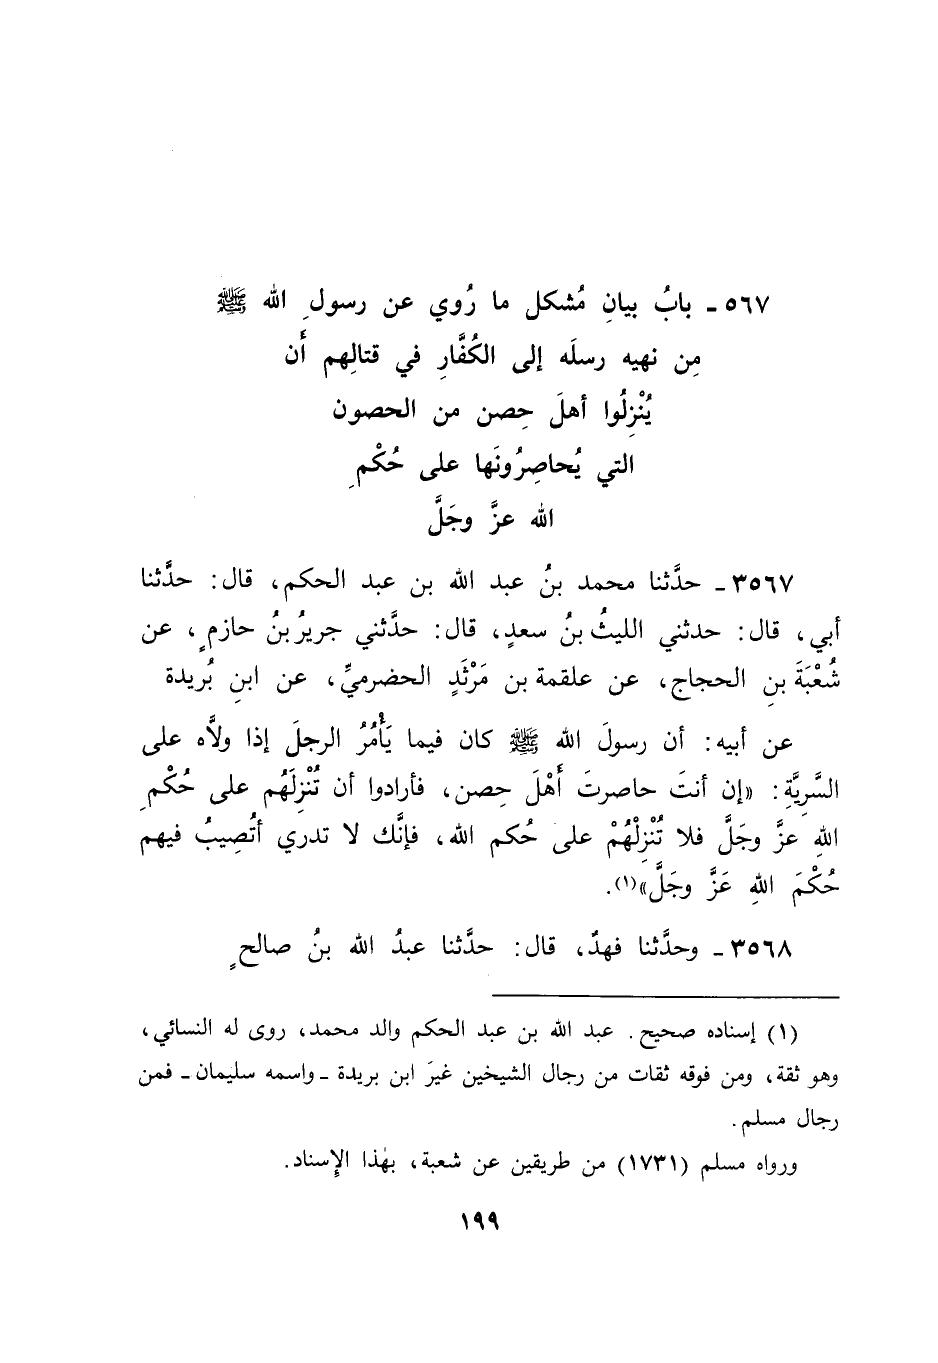 ٥٦٧ ـ بابُ بيانِ مُشكل ما رُوي عن رسولِ الله ﷺ
مِن نهيه رسلَه إلى الكُفَّارِ في قتالِهم أَن
يُنْزِلُوا أهلَ حِصن من الحصون
التي يُحاصِرُونَها على حُكْمِ
الله عزَّ وجَلَّ
٣٥٦٧ ـ حدَّثنا محمد بنُ عبد الله بن عبد الحكم، قال: حدَّثنا
أبي، قال: حدثني الليثُ بنُ سعدٍ، قال: حدَّثني جريرُ بنُ حازمٍ، عن
شُعْبَةَ بنِ الحجاج، عن علقمة بن مَرْثَدٍ الحضرميِّ، عن ابنِ بُريدة
عن أبيه: أن رسولَ الله ﷺ كان فيما يَأْمُرُ الرجلَ إذا ولاَّه على
السَّرِيَّةِ: «إن أنتَ حاصرتَ أَهْلَ حِصن، فأرادوا أن تُنْزِلَهُم على حُكْمِ
اللهِ عزَّ وجَلَّ فلا تُنْزِلْهُمْ على حُكم الله، فإنَّك لا تدري أتُصِيبُ فيهم
حُكْمَ اللهِ عَزَّ وجَلَّ»(١).
٣٥٦٨ ـ وحدَّثنا فهدٌ، قال: حدَّثنا عبدُ الله بنُ صالحٍ
(١) إسناده صحيح. عبد الله بن عبد الحكم والد محمد، روى له النسائي،
وهو ثقة، ومن فوقه ثقات من رجال الشيخين غيرَ ابن بريدة ـ واسمه سليمان ـ فمن
رجال مسلم.
ورواه مسلم (١٧٣١) من طريقين عن شعبة، بهٰذا الإِسناد.
١٩٩